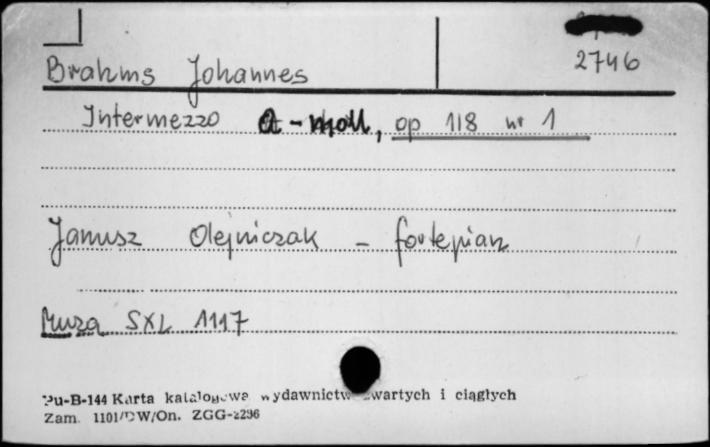 2746
Brahms Johannes
Intermezzo a-moll, op 118 nr 1
Janusz Olejniczak - fortepian
Muza SXL 1117
Pu-B-144 Karta katalogowa wydawnictw zwartych i ciągłych
Zam. 1101/DW/On. ZGG-2236